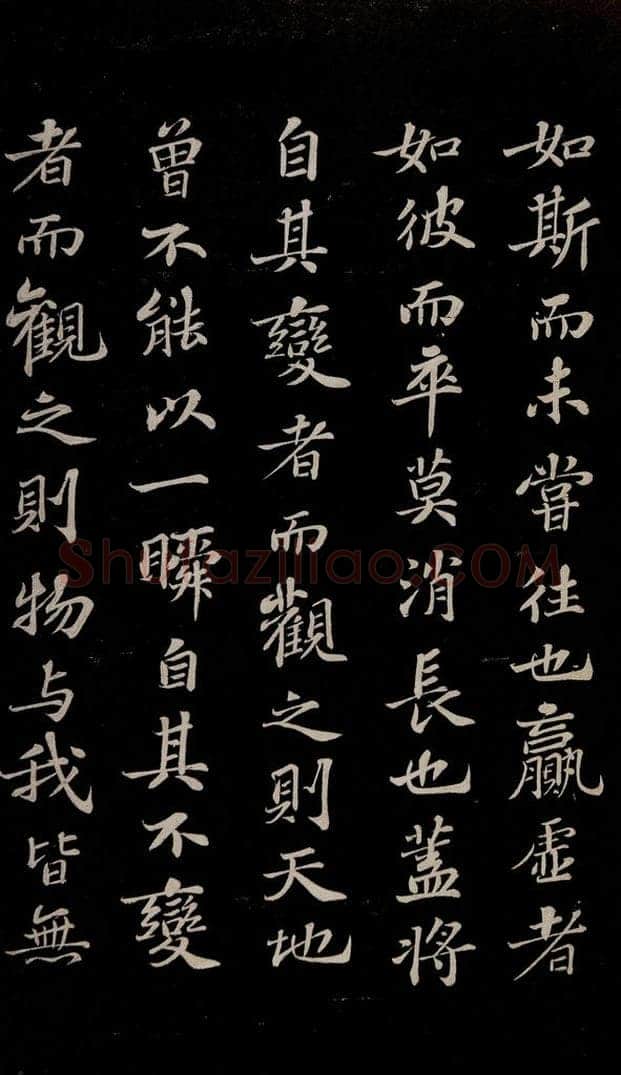 如斯而未嘗往也贏虛者
如彼而卒莫消長也蓋將
自其變者而觀之則天地
曾不能以一瞬自其不變
者而觀之則物与我皆無
Shufaziliao.COM